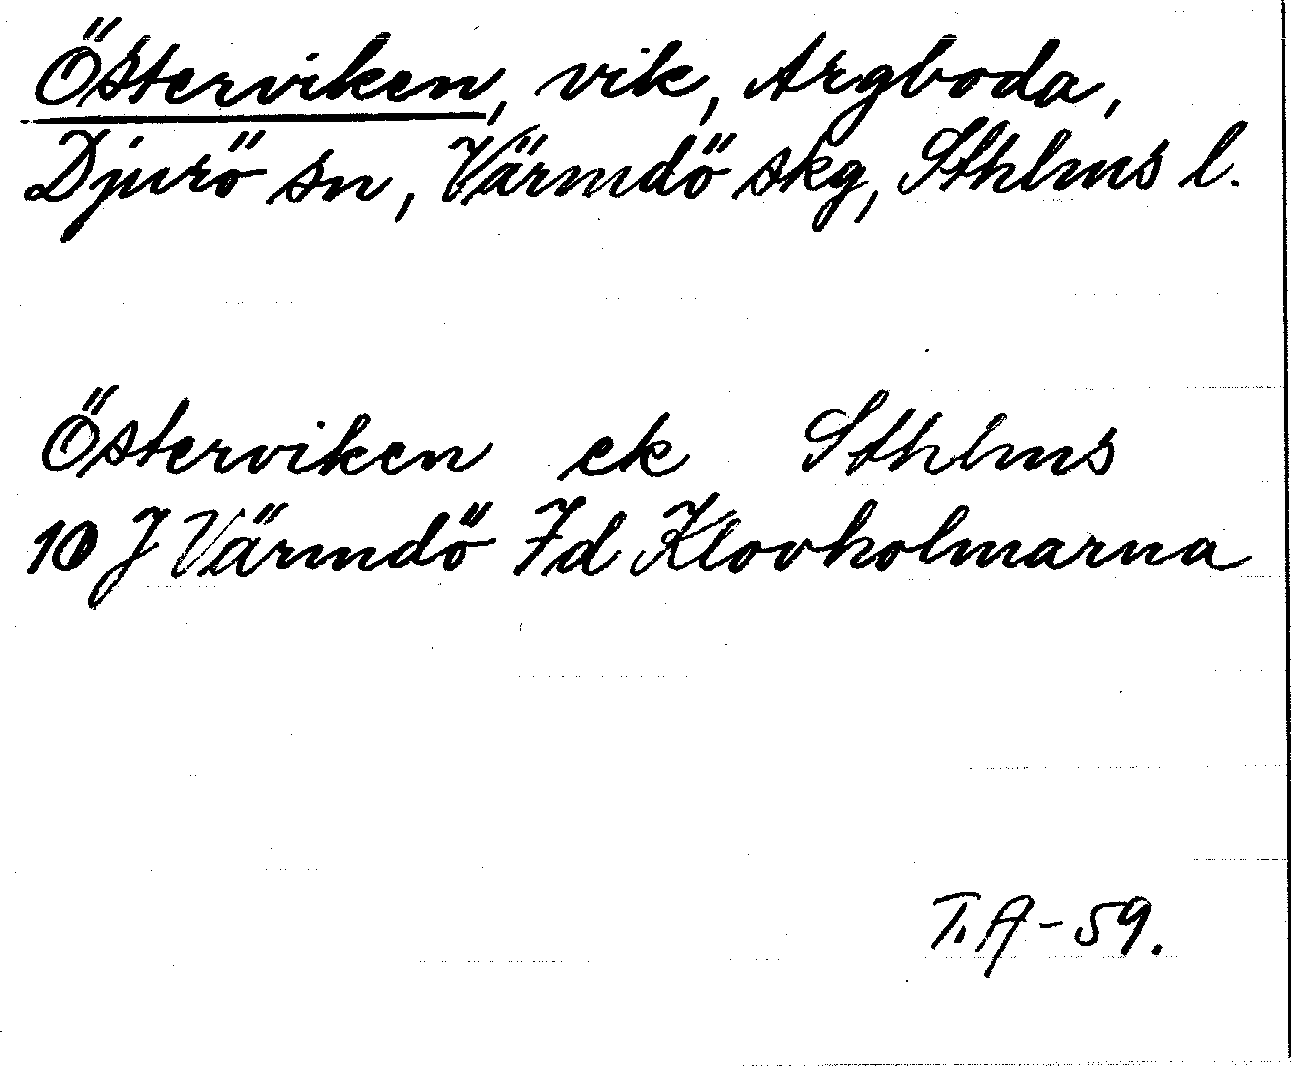 Österviken, vik, Argboda,
Djurö sn, Värmdö skg, Sthlms l.
Österviken ek Sthlms
10 J Värmdö 7d Klovholmarna
T.A-59.